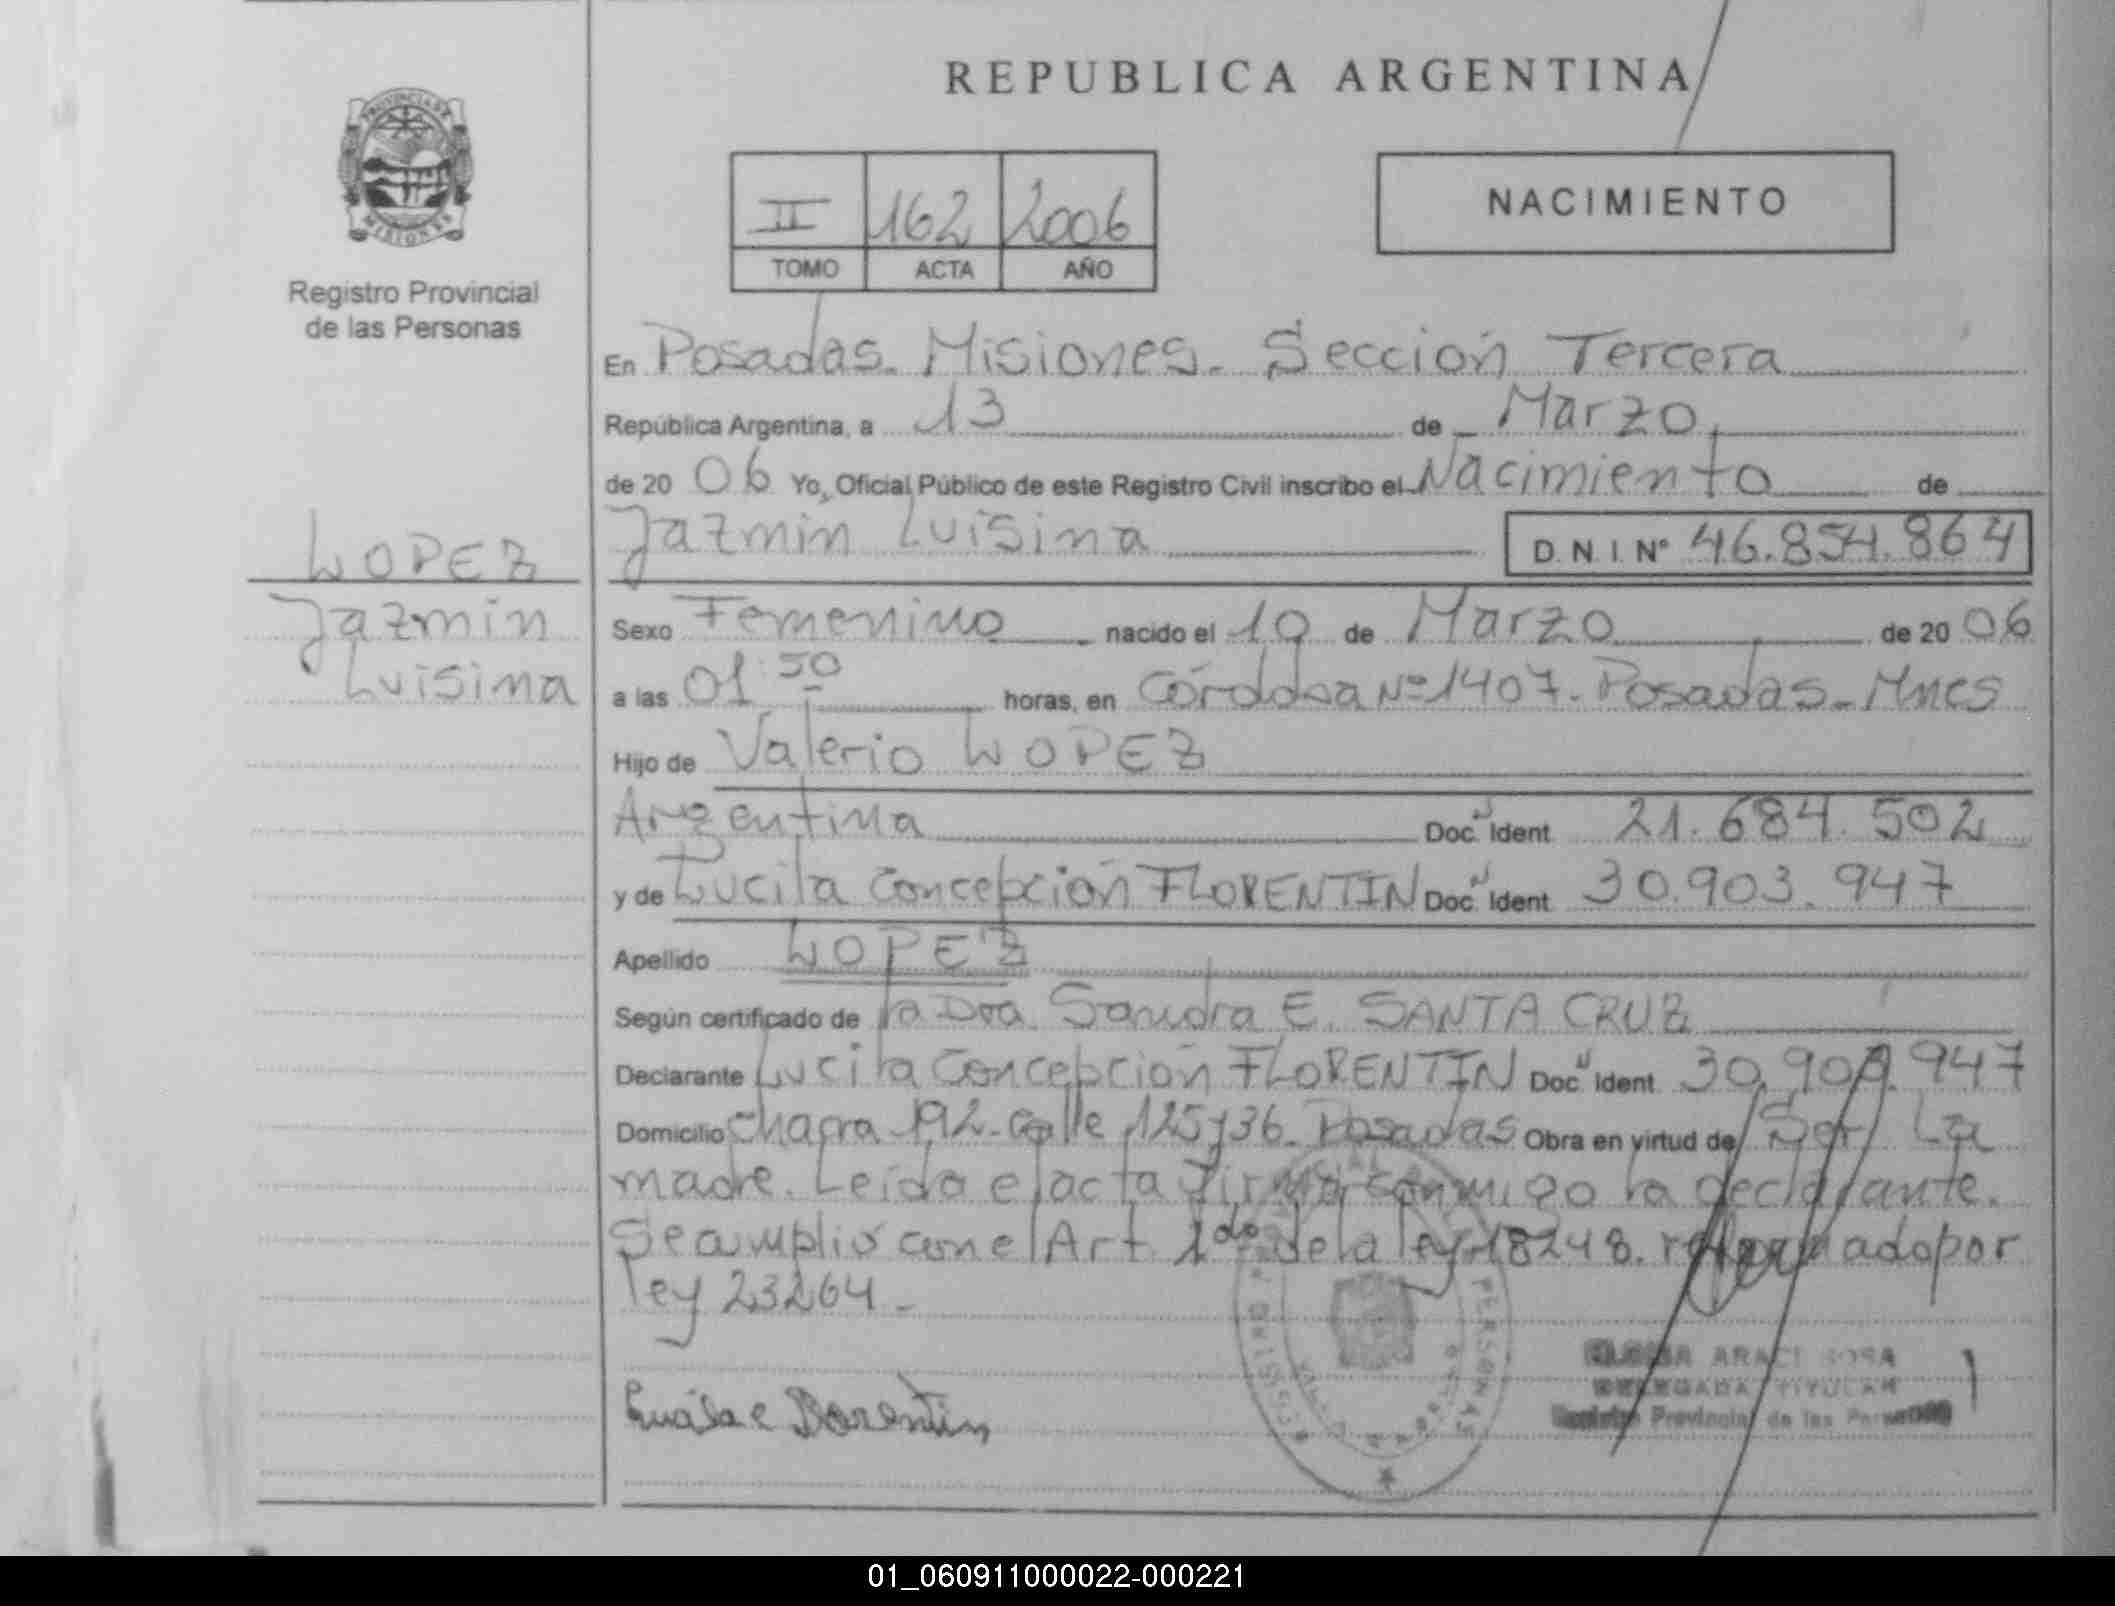 REPUBLICA ARGENTINA
PROVINCIA DE
MISIONES
Registro Provincial
de las Personas
II 162 2006
TOMO ACTA AÑO
NACIMIENTO
En Posadas. Misiones. Sección Tercera
República Argentina, a 13 de Marzo
de 20 06 Yo, Oficial Público de este Registro Civil inscribo el Nacimiento de
Jazmin Luisina D.N.I. Nº 46.854.864
LOPEZ
Jazmin
Luisina
Sexo Femenino nacido el 10 de Marzo de 20 06
a las 01:50 horas, en Córdoba Nº 1407. Posadas. Mnes
Hijo de Valerio LOPEZ
Argentina Doc. Ident 21.684.502
y de Lucila Concepción FLORENTIN Doc. Ident 30.903.947
Apellido LOPEZ
Según certificado de la Dra. Sandra E. SANTA CRUZ
Declarante Lucila Concepción FLORENTIN Doc. Ident 30.903.947
Domicilio Chacra 192. Calle 125 y 36. Posadas Obra en virtud de Ser La
madre. Leida el acta firma conmigo la declarante.
Se cumplió con el Art 2do de la ley 18248. reformado por
ley 23264.
PERSONAS
ARACI SOSA
DELEGADA TITULAR
Registro Provincial de las Personas
01_060911000022-000221